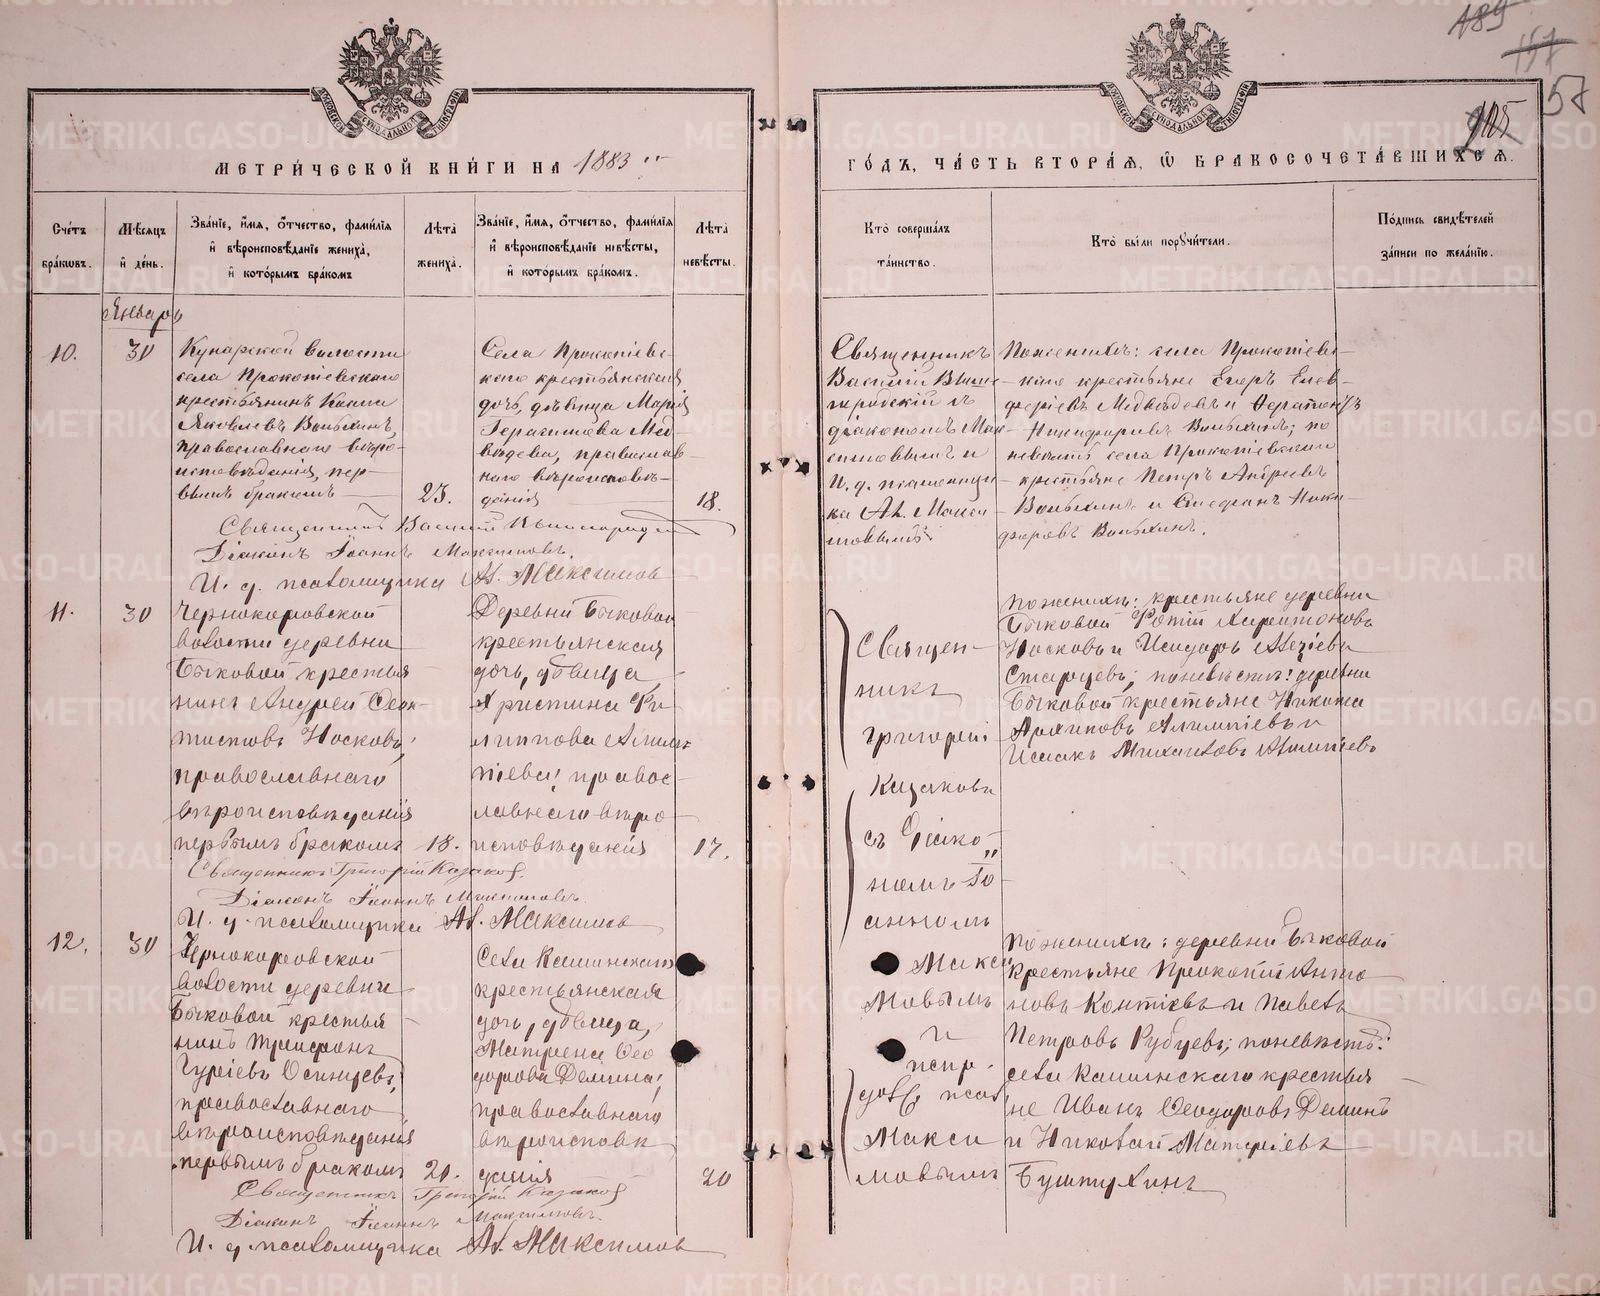 189
157
57
105
МЕТРИ́ЧЕСКОЙ КНИ́ГИ НА 1883
ГО́ДЪ, ЧА́СТЬ ВТОРА́Я, Ѡ БРАКОСОЧЕТА́ВШИХСЯ.
Сче́тъ бра́кѡвъ.
Мѣ́сяцъ и҆ де́нь.
Зва́нїе, и҆́мя, ѻ҆́тчество, фами́лїя
и҆ вѣроисповѣ́данїе жениха̀,
и҆ кото́рымъ бра́комъ
Лѣ́та жениха̀.
Зва́нїе, и҆́мя, ѻ҆́тчество, фами́лїя
и҆ вѣроисповѣ́данїе невѣ́сты,
и҆ кото́рымъ бра́комъ.
Лѣ́та невѣ́сты.
Кто̀ соверша́лъ
та́инство.
Кто̀ бы́ли порꙋчи́тели.
По́дпись свидѣ́телей
за́писи по жела́нїю.
Январь
10.
30
Кунарской волости
села Прокопіевскаго
крестьянинъ Косма
Яковлевъ Вольхинъ,
православнаго вѣро-
исповѣданія, пер-
вымъ бракомъ
23.
Села Прокопіевс-
каго крестьянская
дочь, дѣвица Марія
Герасимова Мед-
вѣдева, православ-
наго вѣроисповѣ-
данія
18.
Священникъ
Василій Выше-
городскій съ
діакономъ Мак-
симовымъ и
И. д. псаломщи-
ка Ал. Макси
мовымъ
Поженихѣ: села Прокопіевс-
каго крестьяне Егоръ Елев-
феріевъ Медвѣдевъ и Ферапонтъ
Никифоровъ Вольхинъ; по
невѣстѣ села Прокопіевскаго
крестьяне Петръ Андреевъ
Вольхинъ и Стефанъ Ники-
форовъ Вольхинъ.
Священникъ Василій Вышегородскій
Діаконъ Іоаннъ Максимовъ.
И. д. псаломщика Ал. Максимовъ
11.
30
Чернокоровской
волости деревни
Быковой крестья
нинъ Андрей Феок-
тистовъ Носковъ,
православнаго
вѣроисповѣданія
первымъ бракомъ
18.
Деревни Быковой
крестьянская
дочь, дѣвица
Христина Фи-
липпова Алим-
піева, правос-
лавнаго вѣро-
исповѣданія
17.
Священ-
никъ
Григорій
Казаковъ
съ Діако-
номъ Іо-
анномъ
Макси
мовымъ
и
испр.
долж. псал.
Макси
мовымъ
Поженихѣ: крестьяне деревни
Быковой Фотій Харитоновъ
Носковъ и Исидоръ
Старцевъ; поневѣстѣ: деревни
Быковой крестьяне Никита
Архиповъ Алимпіевъ и
Исаакъ Михаиловъ Алимпіевъ
Священникъ Григорій Казаковъ.
Діаконъ Іоаннъ Максимовъ.
И. д. псаломщика Ал. Максимовъ
12.
30
Чернокоровской
волости деревни
Быковой крестья
нинъ Трифонъ
Гуріевъ Осинцевъ,
православнаго
вѣроисповѣданія
первымъ бракомъ
20.
Села Кашинскаго
крестьянская
дочь, дѣвица,
Матрена Фео
дорова Демина,
православнаго
вѣроисповѣ
данія
20
Поженихѣ: деревни Быковой
крестьяне Прокопій Анто
новъ Коптевъ и Павелъ
Петровъ Рубцевъ; поневѣстѣ:
села Кашинскаго крестья
не Иванъ Феодоровъ Деминъ
и Николай Матфіевъ
Бушпихинъ
Священникъ Григорій Казаковъ
Діаконъ Іоаннъ Максимовъ.
И. д. псаломщика Ал. Максимовъ
METRIKI.GASO-URAL.RU